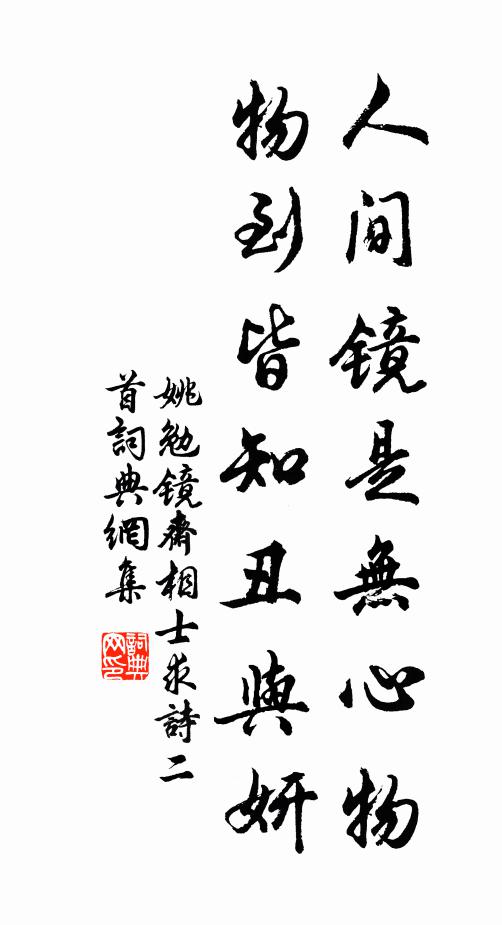 人间镜是無心物
物到皆知丑與妍
姚勉镜齋相士求詩二
首詞典網集
詞典网印